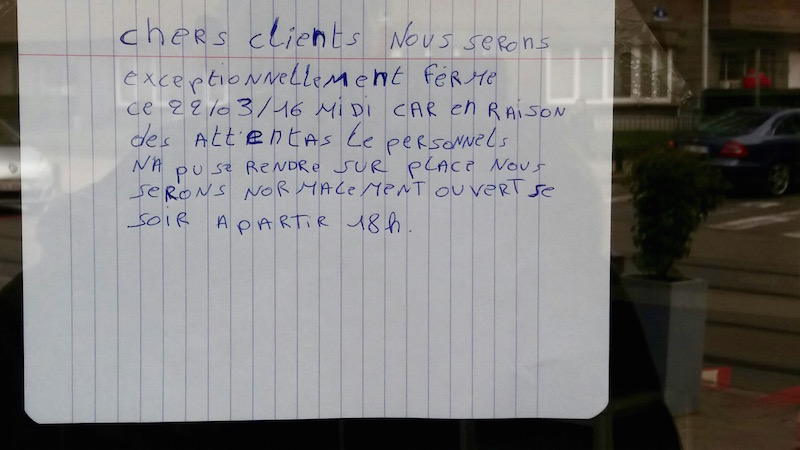 chers clients Nous serons
exceptionnellement fermé
ce 22/03/16 Midi CAR en RAISON
des Attentas Le personnels
NA pu se RENDRE SUR PLACE NOUS
SERONS NORMALEMENT OUVERT se
SOIR A PARTIR 18h.